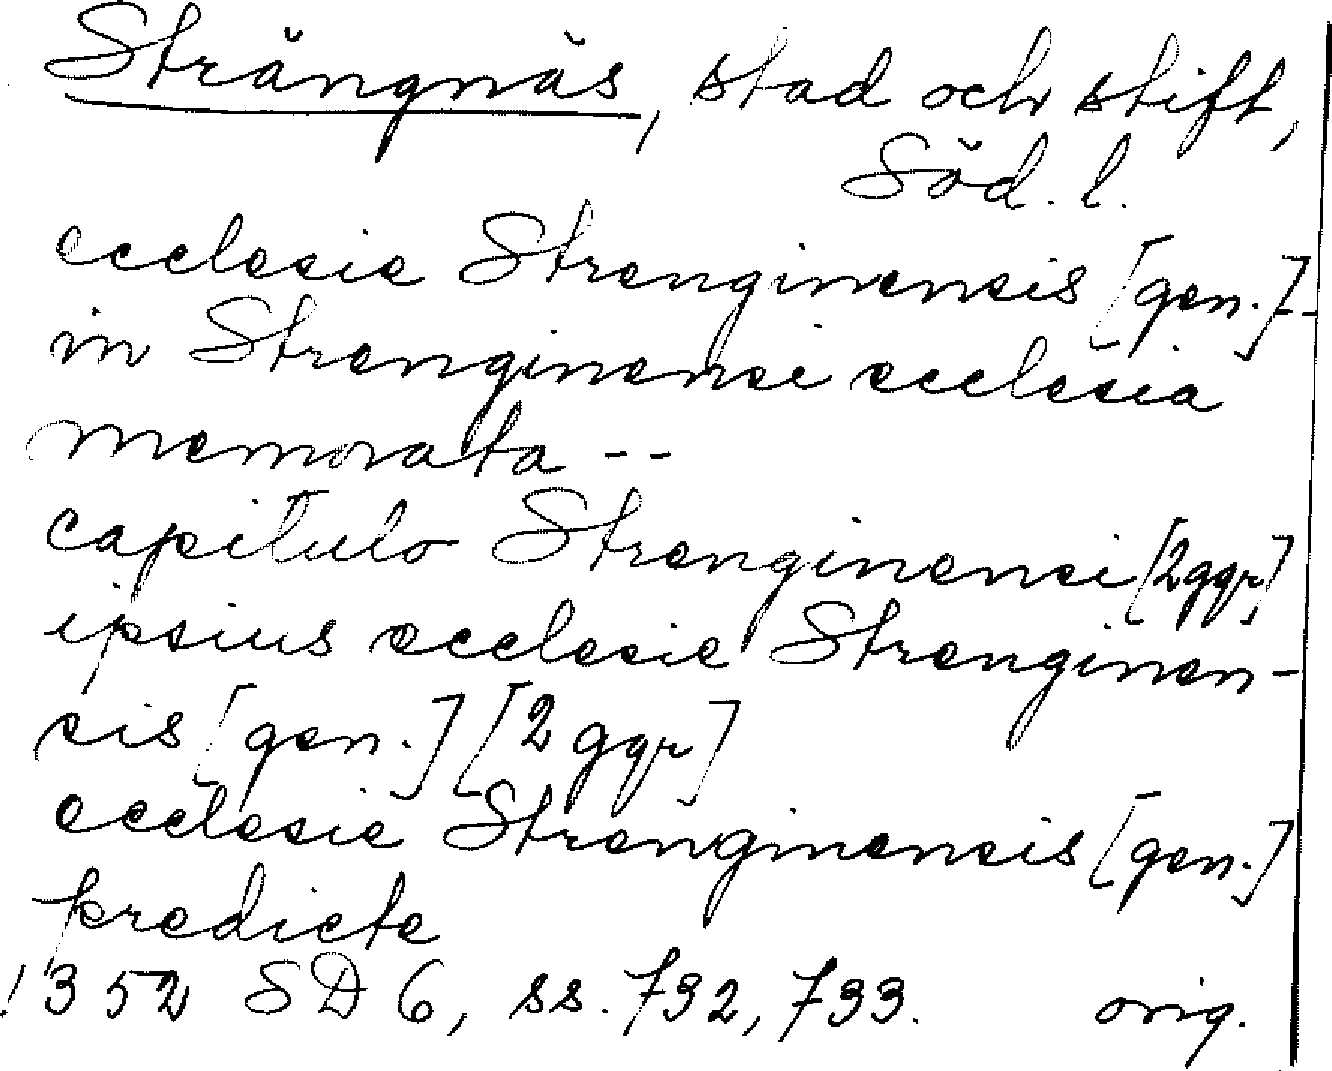 Strängnäs, stad och stift,
Söd. l.
ecclesie Strenginensis [gen.]--
in Strenginensi ecclesia
memorata --
capitulo Strenginensi [2 ggr]
ipsius ecclesie Strenginen-
sis [gen.] [2 ggr]
ecclesie Strenginensis [gen.]
predicte
1352 SD 6, ss. 732, 733. orig.